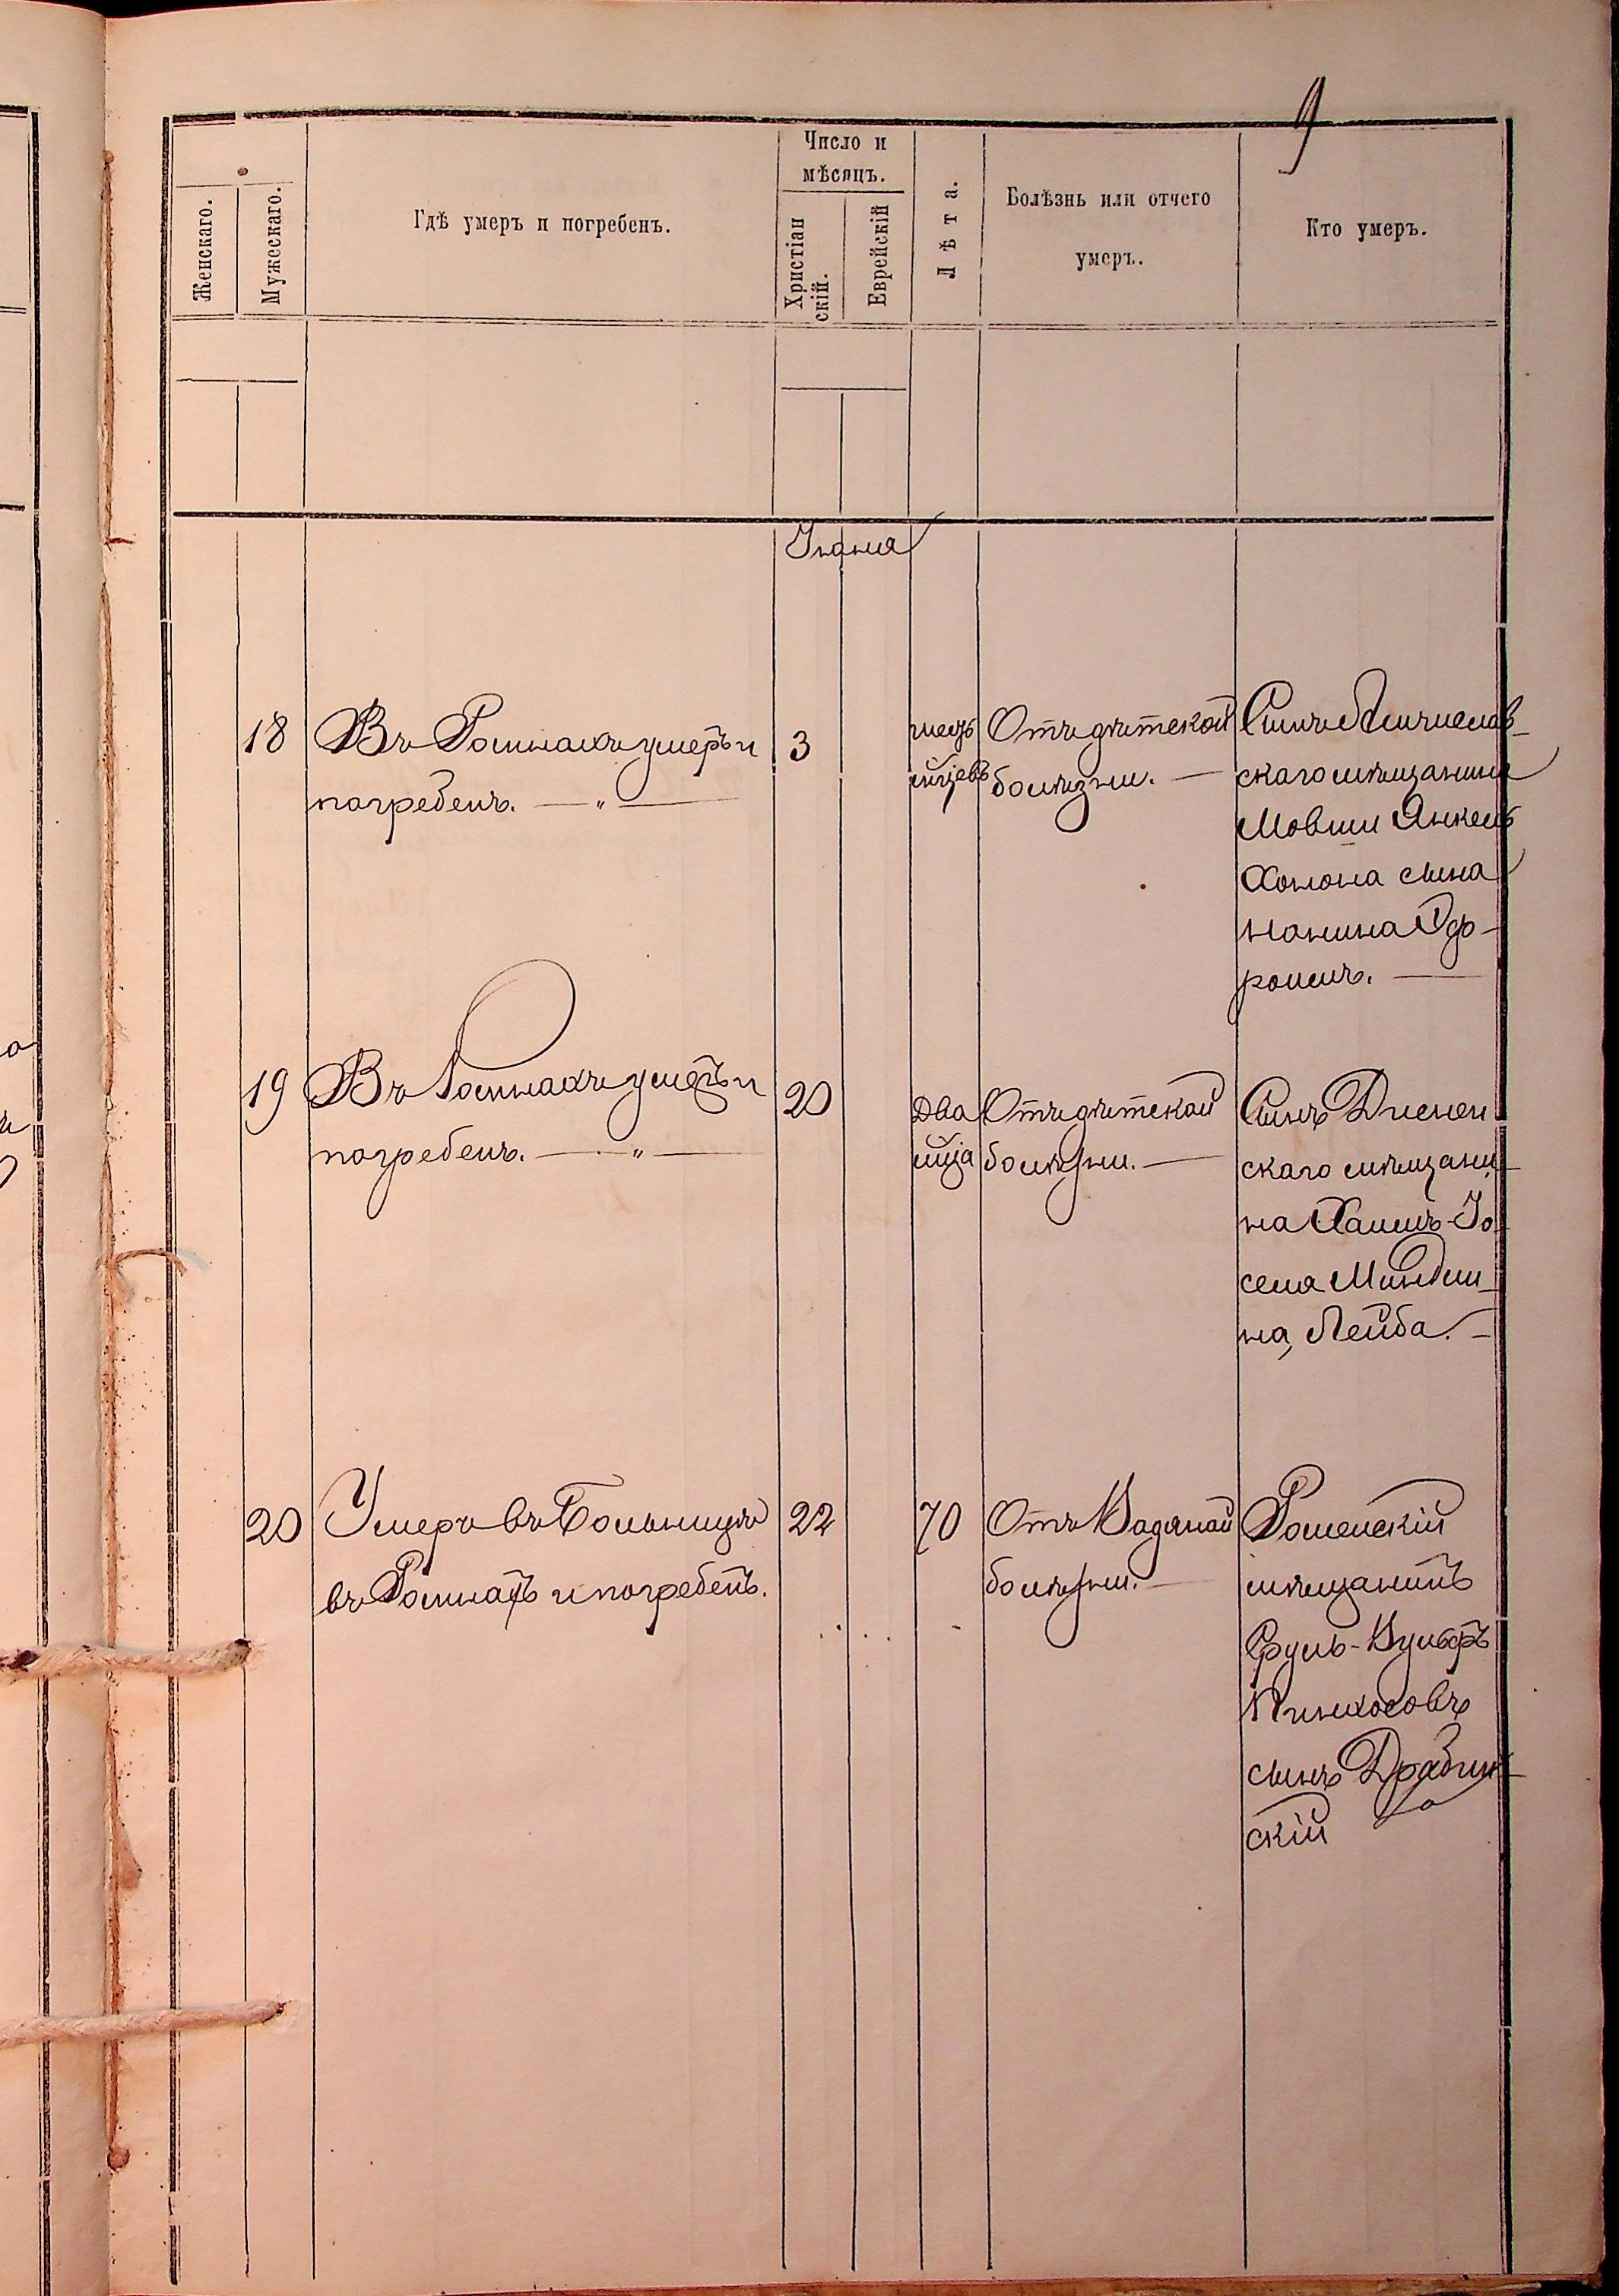 9
Женскаго.
Мужескаго.
Гдѣ умеръ и погребенъ.
Число и
мѣсяцъ.
Христіан
скій.
Еврейскій
Лѣта.
Болѣзнь или отчего
умеръ.
Кто умеръ.
Іюня
18
Въ Ромнахъ умеръ и
погребенъ. — „ —
3
шесть
мцевъ
Отъ дѣтской
болѣзни. —
Сынъ Мстислав-
скаго мѣщанина
Мовши Янкель
Хонона сына
Эф-
роимъ. —
19
Въ Ромнахъ умеръ и
погребенъ. — „ —
20
Два
мца
Отъ дѣтской
болѣзни. —
Сынъ Дисен
скаго мѣщани-
на Хаимъ-Іо
селя Миндли-
на, Лейба. —
20
Умеръ въ Больницѣ
въ Ромнахъ и погребенъ.
22
70
Отъ Водяной
болѣзни. —
Роменскій
мѣщанинъ
Сруль-Вульфъ
Пинхосовъ
сынъ Драбин-
скій